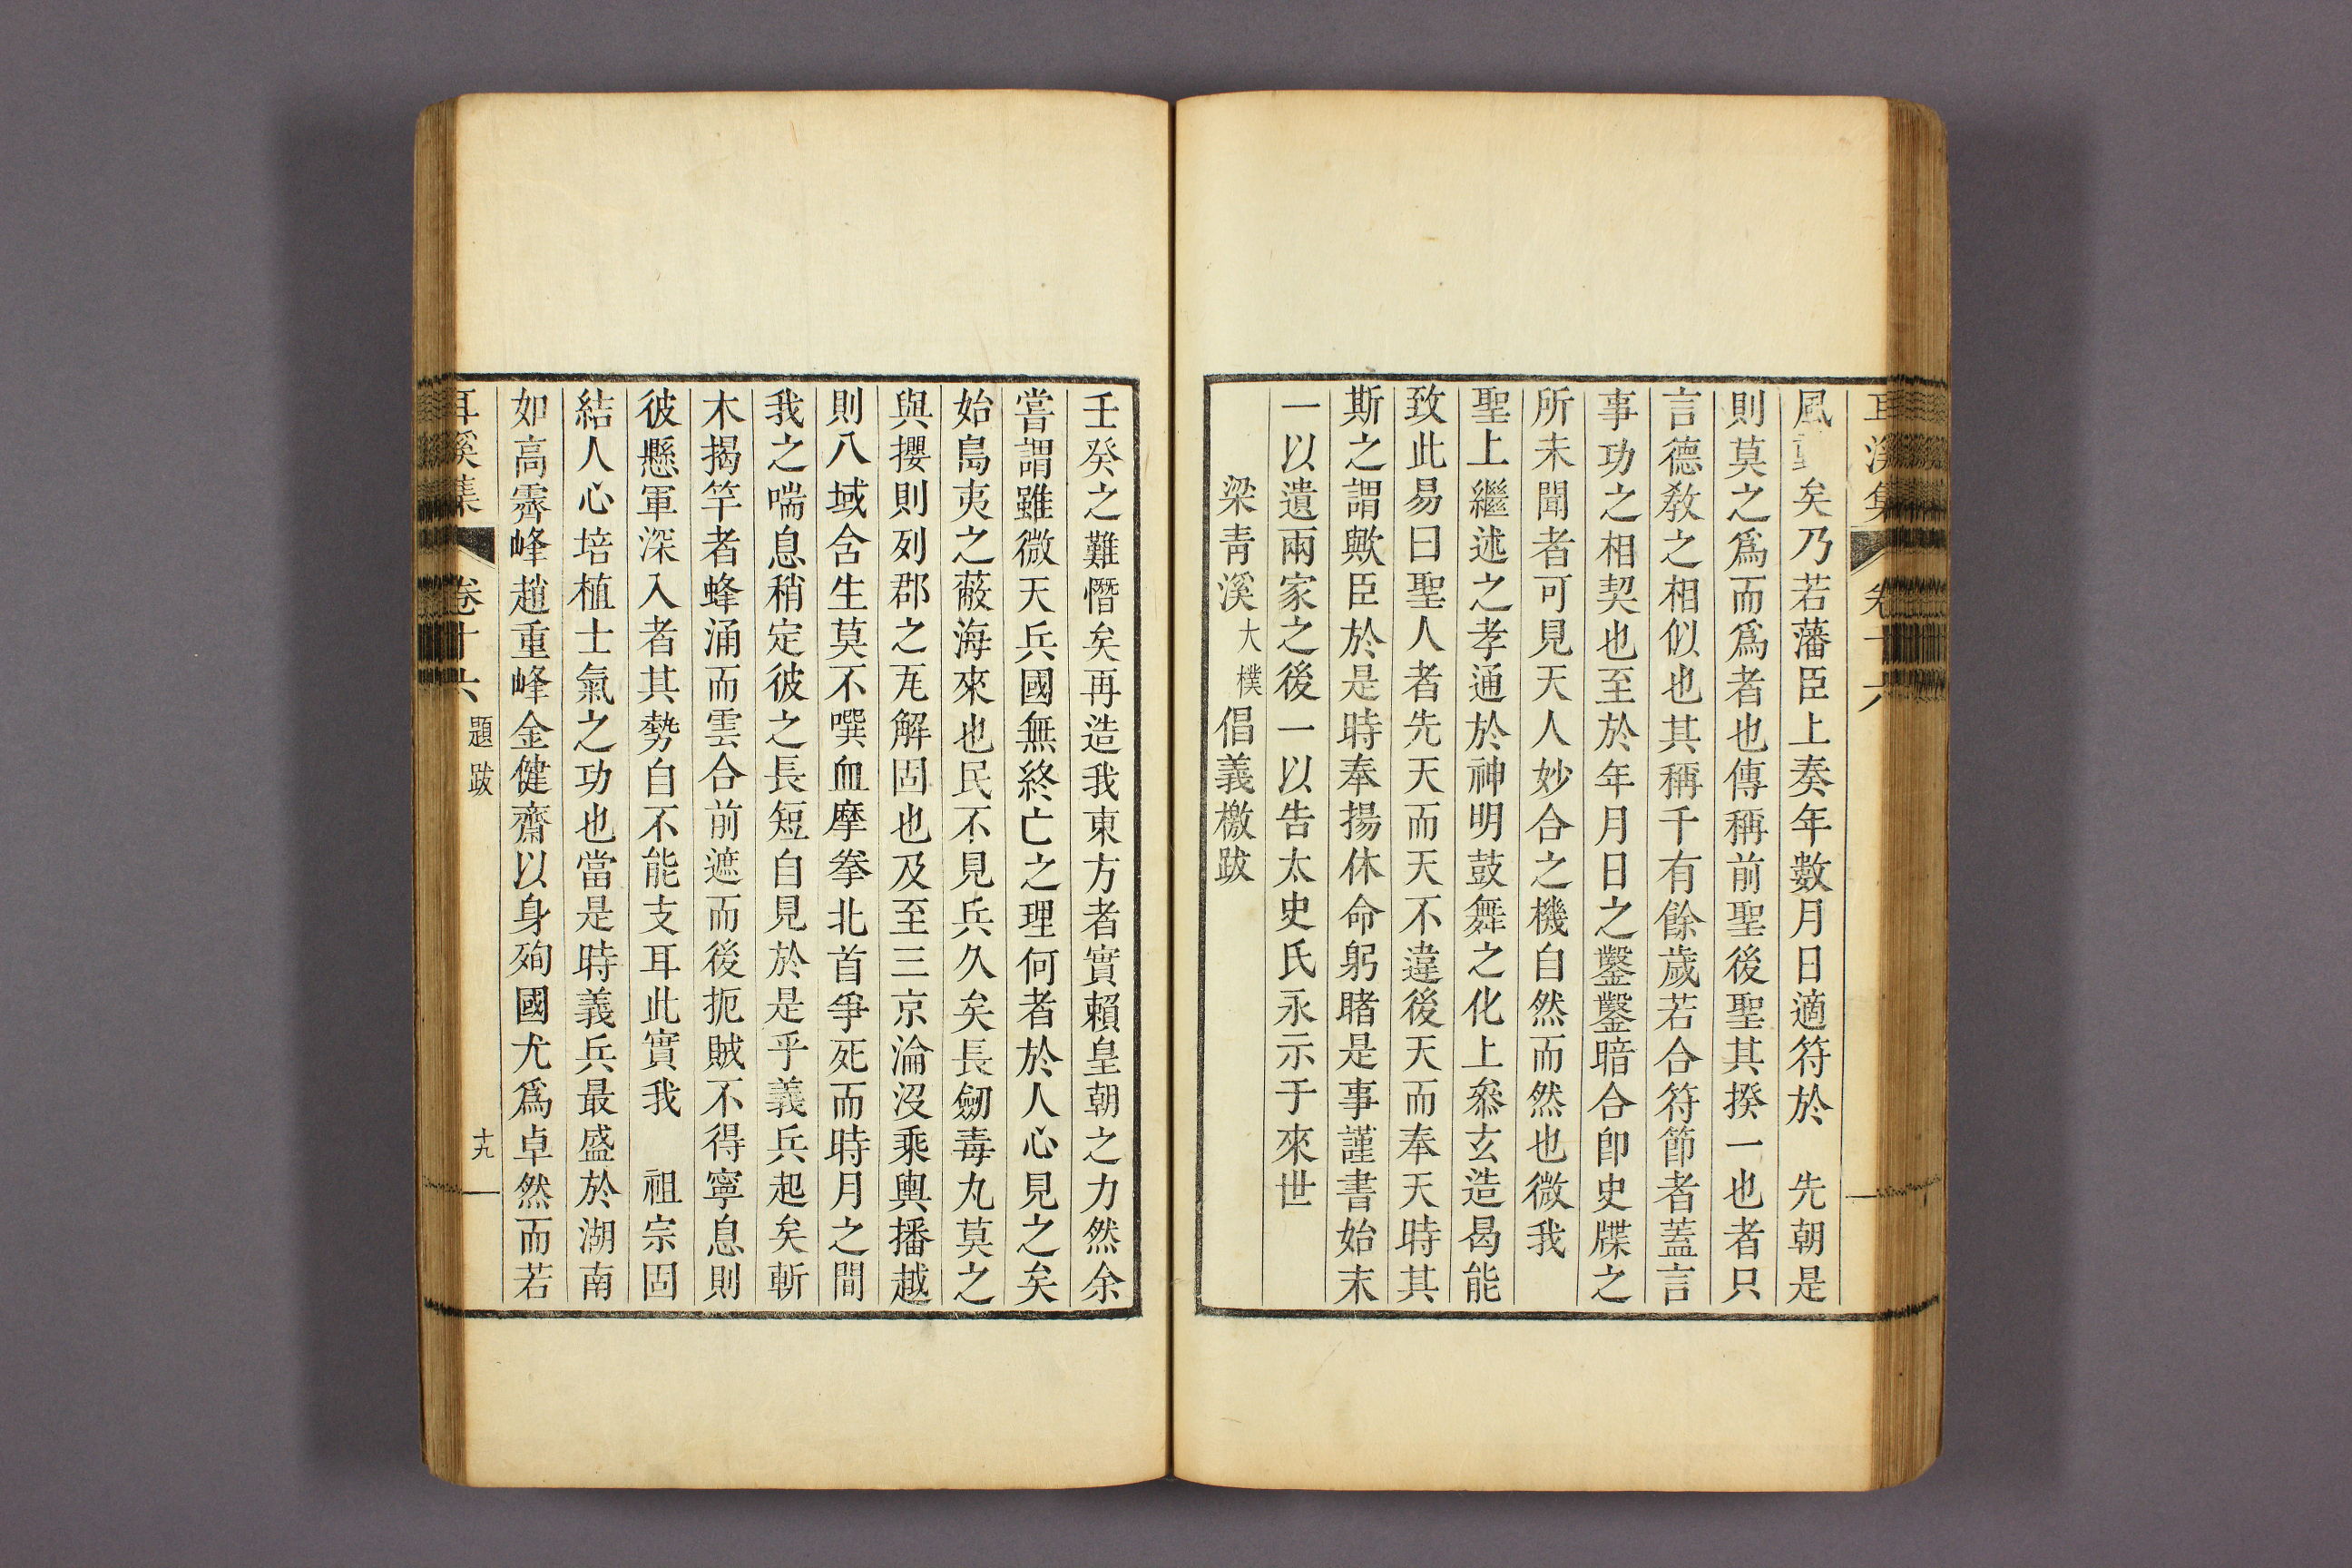 風 矣乃若藩臣上奏年數月日適符於　先朝是
則莫之爲而爲者也傳稱前聖後聖其揆一也者只
言德敎之相似也其稱千有餘歲若合符節者蓋言
事功之相契也至於年月日之鑿鑿暗合卽史牒之
所未聞者可見天人妙合之機自然而然也微我
聖上繼述之孝通於神明鼓舞之化上叅玄造曷能
致此易曰聖人者先天而天不違後天而奉天時其
斯之謂歟臣於是時奉揚休命躬睹是事謹書始末
一以遺兩家之後一以告太史氏永示于來世
梁靑溪大樸倡義檄跋
壬癸之難憯矣再造我東方者實賴皇朝之力然余
嘗謂雖微天兵國無終亡之理何者於人心見之矣
始島夷之蔽海來也民不見兵久矣長劒毒丸莫之
與攖則列郡之瓦解固也及至三京淪沒乘輿播越
則八域含生莫不噀血摩拳北首爭死而時月之間
我之喘息稍定彼之長短自見於是乎義兵起矣斬
木揭竿者蜂涌而雲合前遮而後扼賊不得寧息則
彼懸軍深入者其勢自不能支耳此實我　祖宗固
結人心培植士氣之功也當是時義兵最盛於湖南
如高霽峰趙重峰金健齋以身殉國尤爲卓然而若
耳溪集 卷十六 題跋 十九